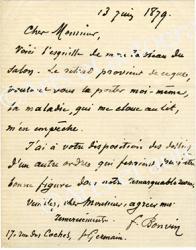 13 juin 1879.
Cher Monsieur,
Voici l'esquisse de mon tableau du
Salon. Le retard provient de ce que,
voulant vous la porter moi-même,
la maladie, qui me cloue au lit,
m'en empêche.
J'ai à votre disposition des dessins
d'un autre ordre qui feraient
bonne figure dans votre remarquable
Veuillez, cher Monsieur, agréer mes
remerciements.
f. Bonvin
17, rue des Coches, St Germain.